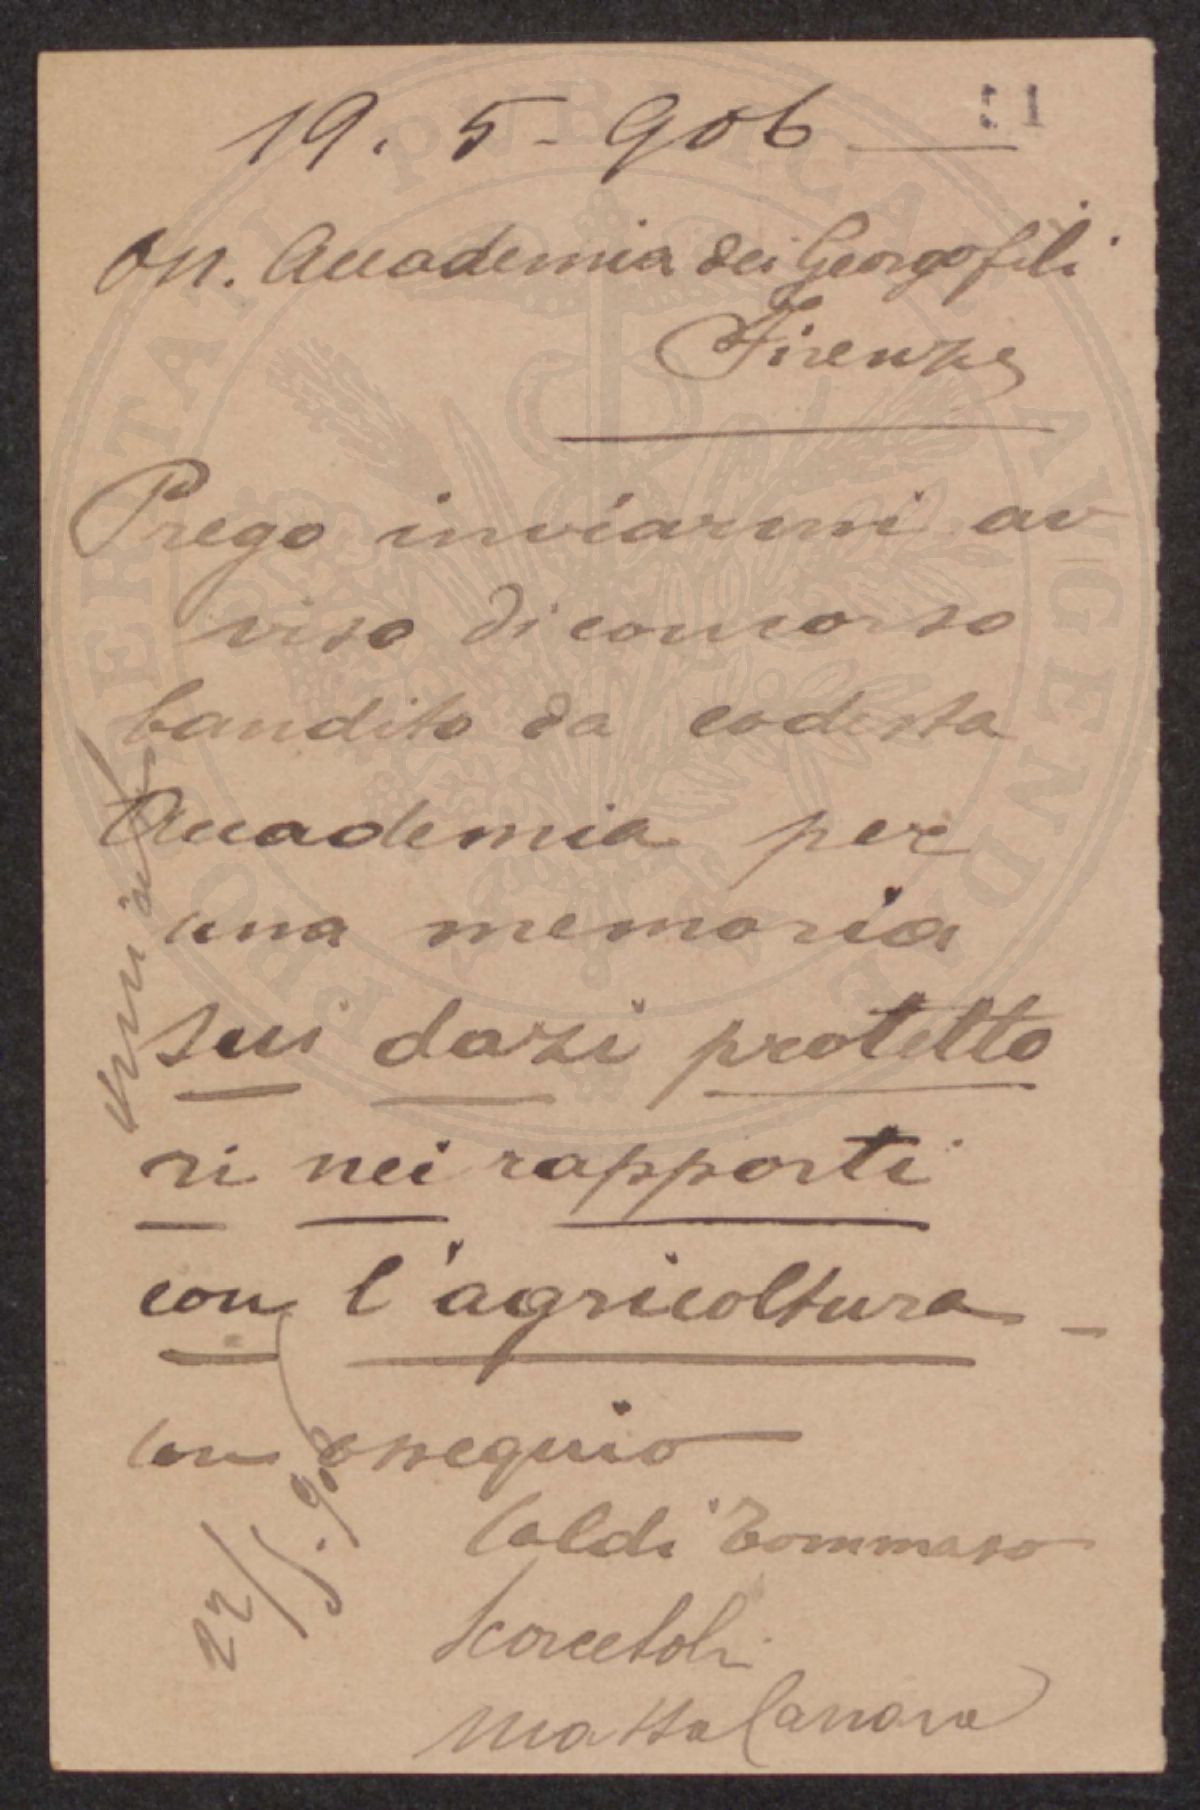 51
19. 5 - 906
On. Accademia dei Georgofili
Firenze
Prego inviarmi av
viso di concorso
bandito da codesta
Accademia per
una memoria
sui dazi protetto
ri nei rapporti
con l'agricoltura -
con ossequio
Caldi Tommaso
Scorcetoli
Massa Carrara
22/5.906
PROSPERITATI PVBLICAE AVGENDAE